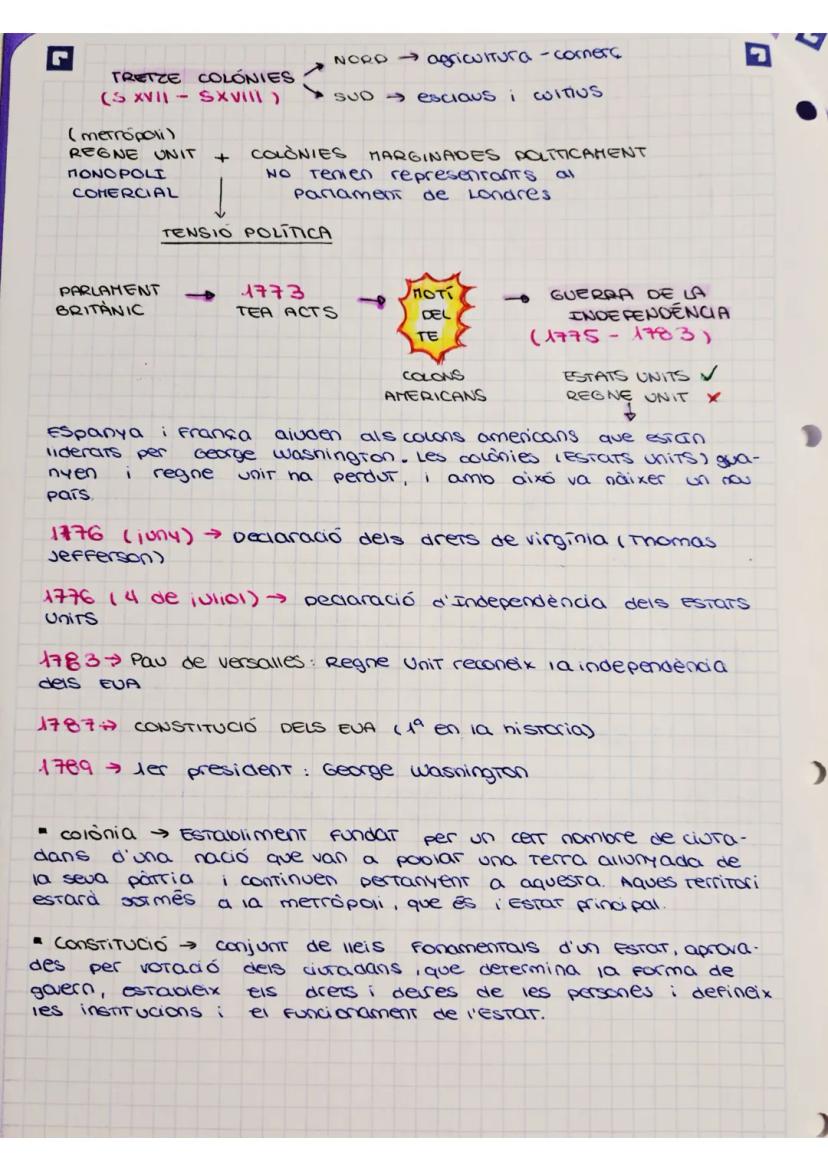 NORD → agricultura - comerç
TRETZE COLÓNIES
(S XVII - SXVIII)
SUD → esclaus i cultius
(metròpoli)
REGNE UNIT + COLÒNIES MARGINADES POLÍTICAMENT
MONOPOLI NO tenien representants al
COMERCIAL Parlament de Londres
↓
TENSIÓ POLÍTICA
PARLAMENT → 1773 → MOTÍ → GUERRA DE LA
BRITÀNIC TEA ACTS DEL INDEPENDÈNCIA
TE (1775 - 1783)
COLONS ESTATS UNITS ✓
AMERICANS REGNE UNIT ✗
Espanya i França ajuden als colons americans que estan
liderats per George Washington. Les colònies (Estats Units) gua-
nyen i regne unit ha perdut, i amb aixó va nàixer un nou
país.
1776 (juny) → Declaració dels drets de virgínia (Thomas
Jefferson)
1776 (4 de juliol) → Declaració d'Independència dels Estats
Units
1783 → Pau de versalles: Regne Unit reconeix la independència
dels EUA
1787 → CONSTITUCIÓ DELS EUA (1ª en la historia)
1789 → 1er president: George Washington
▪ colònia → Establiment fundat per un cert nombre de ciuta-
dans d'una nació que van a poblar una terra allunyada de
la seva pàtria i continuen pertanyent a aquesta. Aques territori
estarà sotmés a la metròpoli, que és l'Estat principal.
▪ Constitució → conjunt de lleis fonamentals d'un Estat, aprova-
des per votació dels ciutadans, que determina la forma de
govern, estableix els drets i deures de les persones i defineix
les institucions i el funcionament de l'Estat.